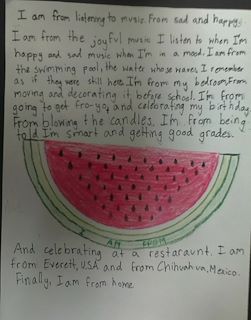 I am from listening to music. From sad and happy.
I am from the joyful music I listen to when I'm
happy and sad music when I'm in a mood. I am from
the swimming pool, the water whose waves I remember
as if they were still here. I'm from my bedroom. From
moving and decorating it before school. I'm from
going to get fro-yo, and celebrating my birthday
From blowing the candles. I'm from being
told I'm smart and getting good grades.
I AM FROM
And celebrating at a restaraunt. I am
from Everett, USA and from Chihuahua, Mexico.
Finally, I am from home